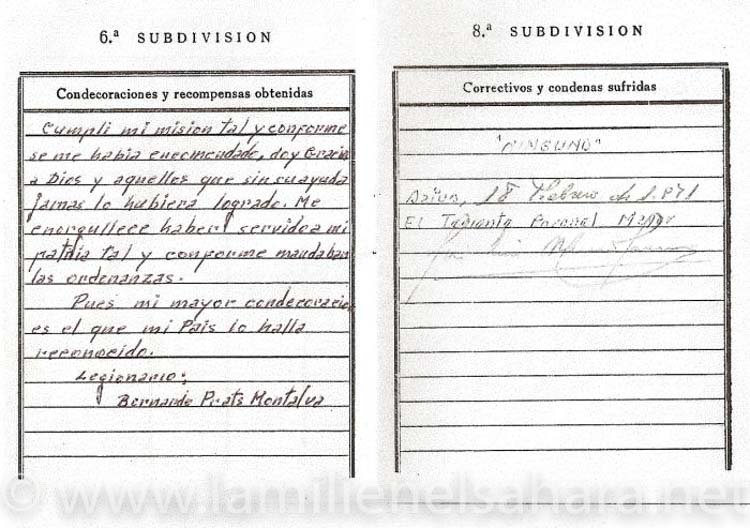 6.ª SUBDIVISION
Condecoraciones y recompensas obtenidas
Cumpli mi mision tal y conforme
se me habia encomendado, doy Gracias
a Dios y aquellos que sin su ayuda
jamas lo hubiera logrado. Me
enorgullece haber servido a mi
patria tal y conforme mandaban
las ordenanzas.
Pues mi mayor condecoracion
es el que mi Pais lo halla
reconocido.
Legionario:
Bernardo Prats Montalva
8.ª SUBDIVISION
Correctivos y condenas sufridas
"NINGUNO"
18 Febrero de 1.971
El Mayor
© www.lamilienelsahara.net